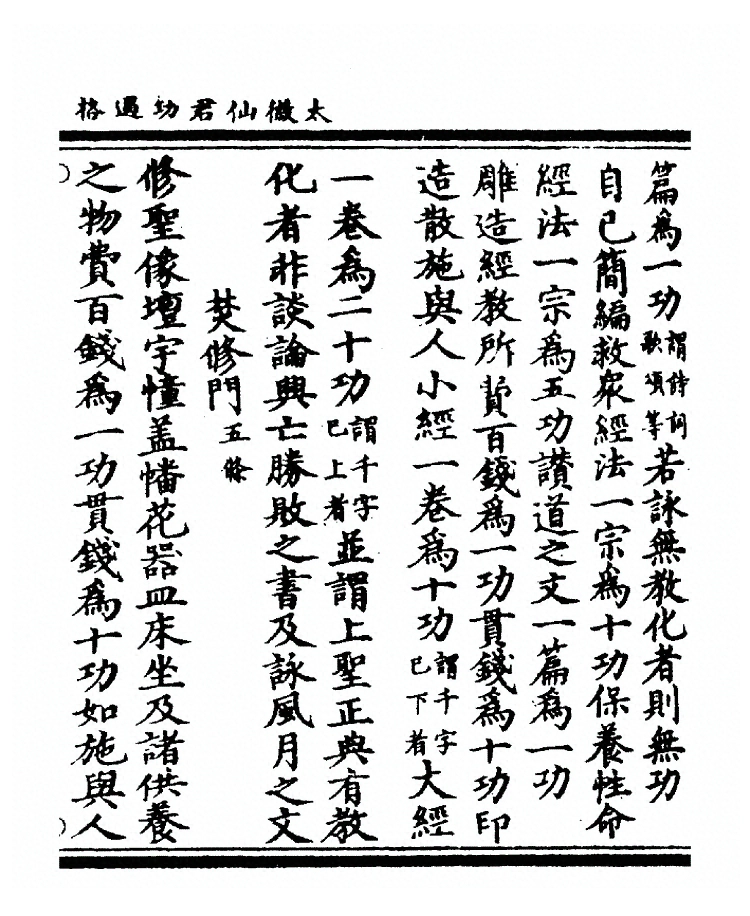 太微仙君功過格
篇爲一功謂詩詞歌頌等若詠無教化者則無功
自已簡編救衆經法一宗爲十功保養性命
經法一宗爲五功讃道之文一篇爲一功
雕造經教所費百錢爲一功貫錢爲十功印
造散施與人小經一卷爲十功謂千字已下者大經
一卷爲二十功謂千字已上者並謂上聖正典有教
化者非談論興亡勝敗之書及詠風月之文
焚修門五條
修聖像壇宇幢盖幡花器皿床坐及諸供養
之物費百錢爲一功貫錢爲十功如施與人